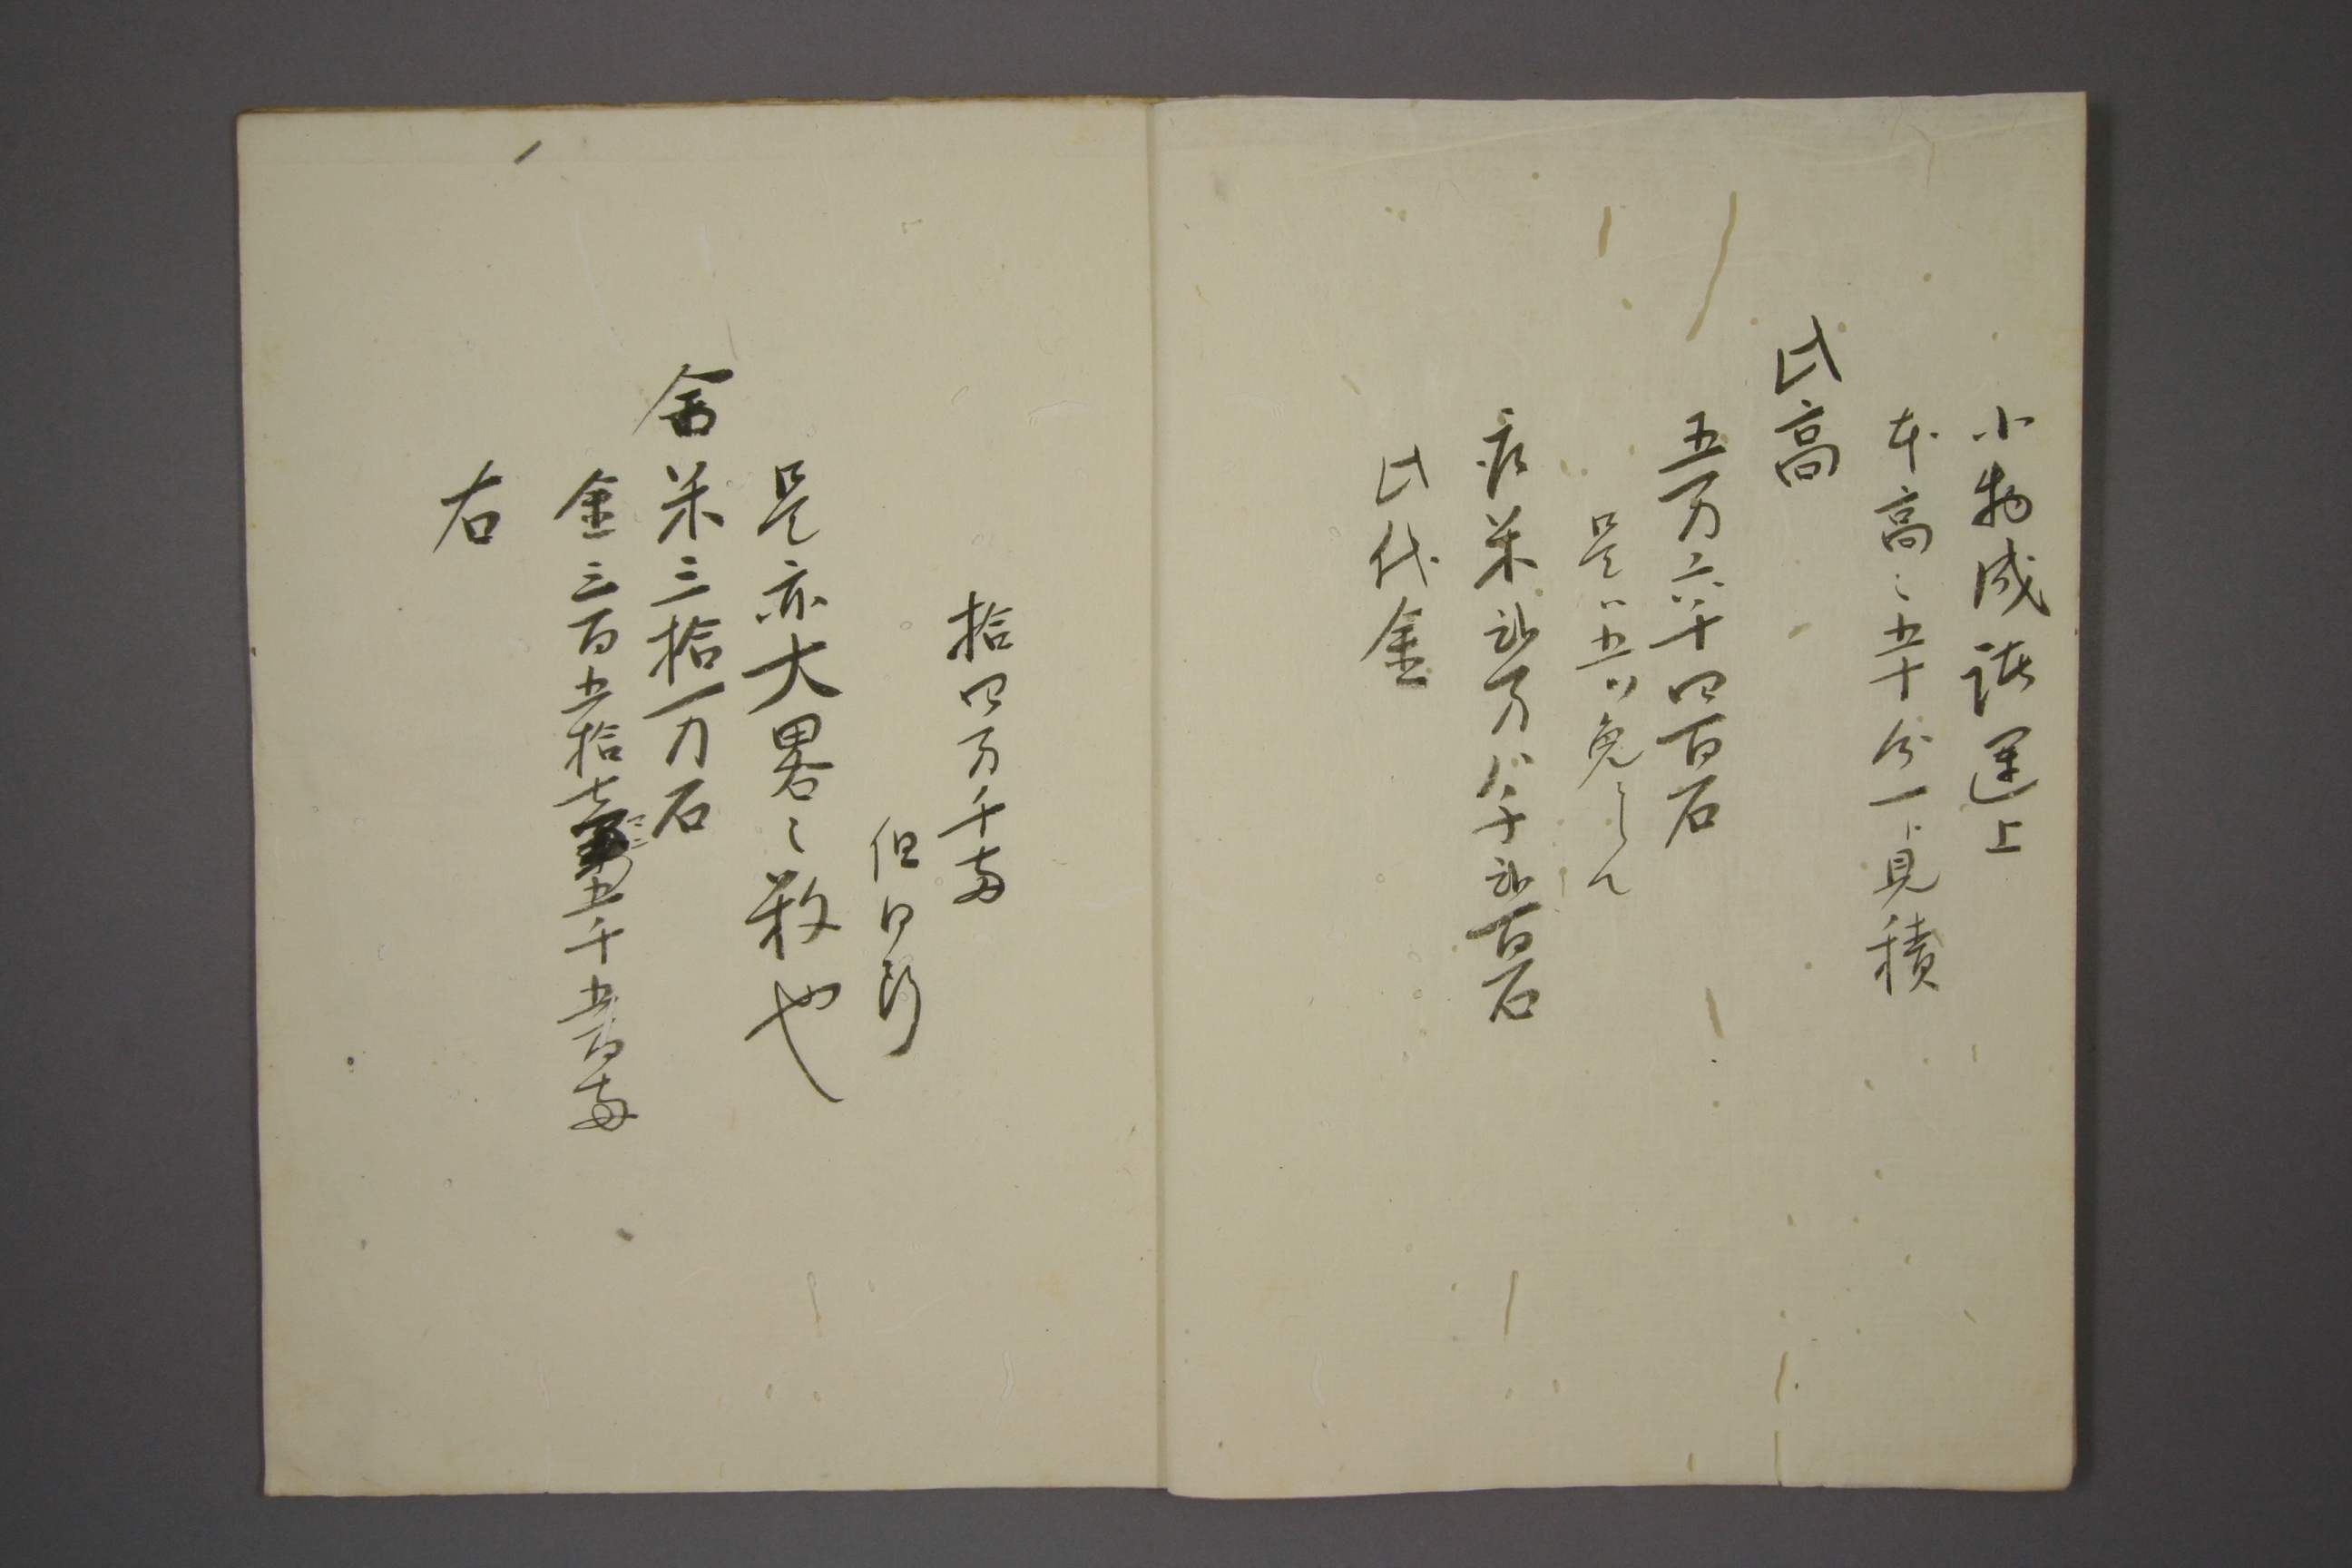 小物成諸運上
本高之五十分一ト見積
此高
五万六千四百石
是ハ五ツ免ニ〆
米弐万八千弐百石
此代金
拾四万千両
但同断
是亦大畧之数也
合米三拾一万石
金三百五拾七五千五百両
右